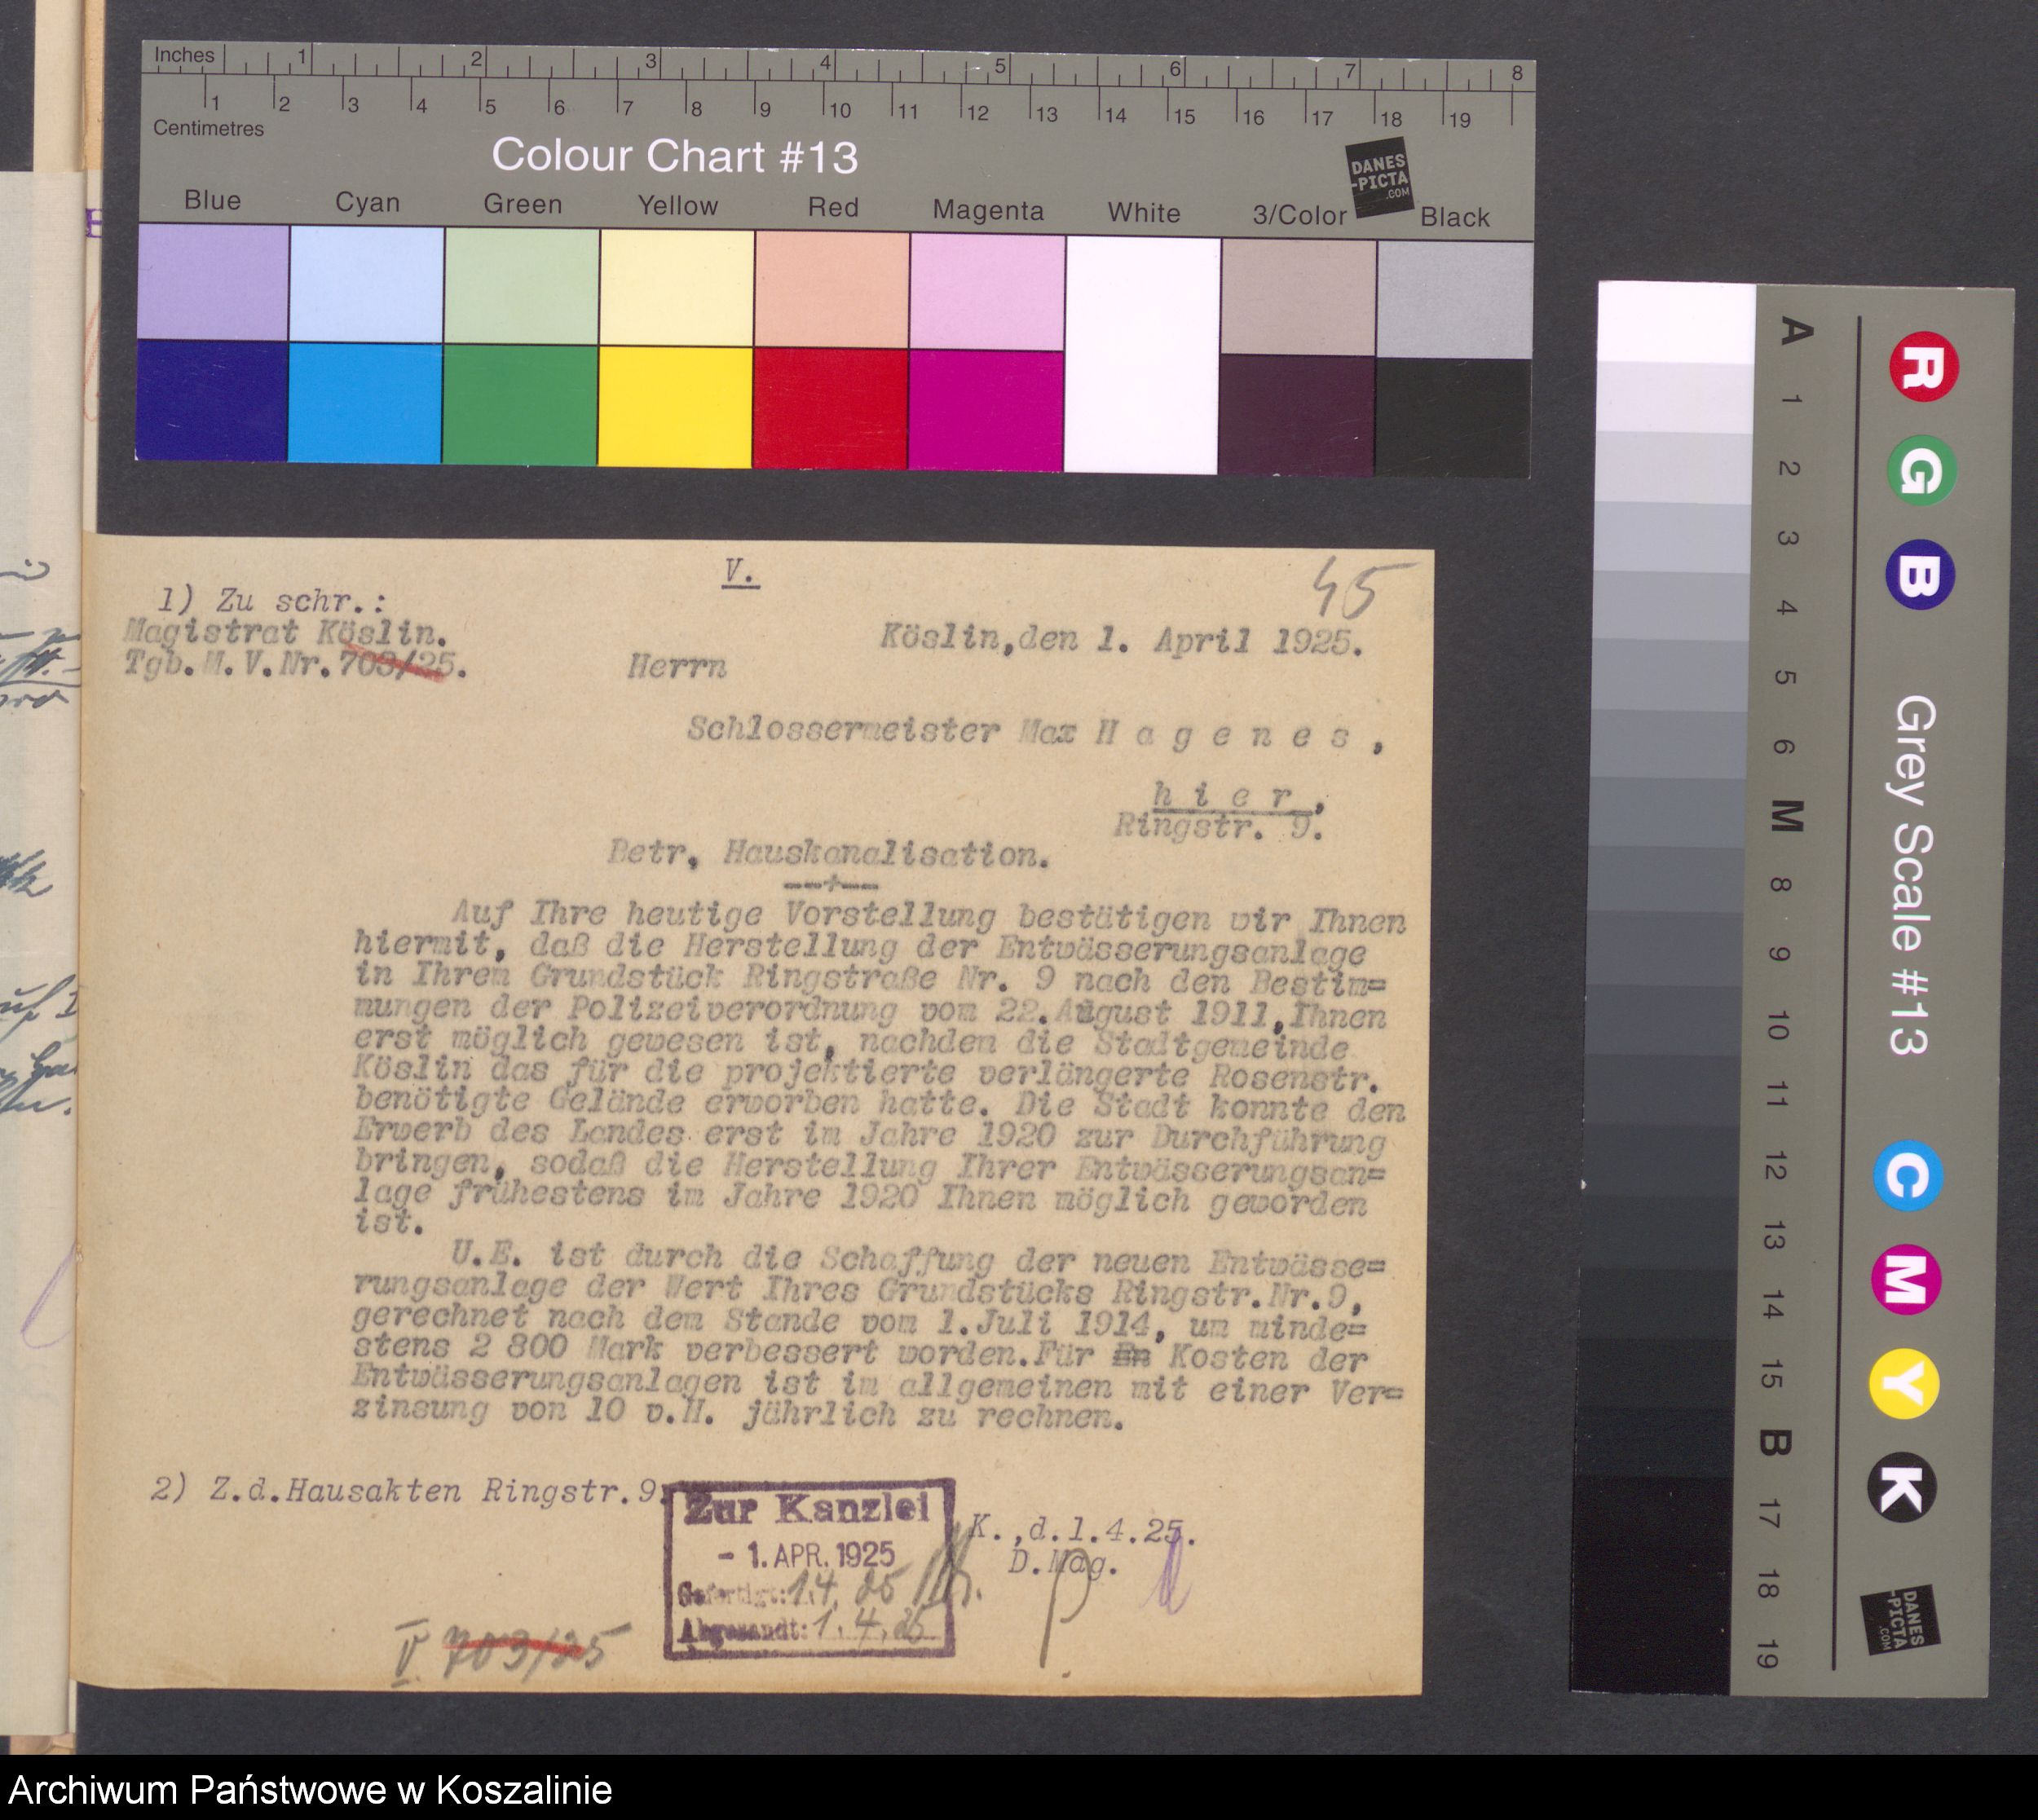 Inches 1 2 3 4 5 6 7 8
1 2 3 4 5 6 7 8 9 10 11 12 13 14 15 16 17 18 19
Centimetres
Colour Chart #13
DANES
-PICTA
.COM
Blue Cyan Green Yellow Red Magenta White 3/Color Black
V.
45
1) Zu schr.:
Magistrat Köslin.
Köslin,den 1. April 1925.
Tgb.M.V.Nr.703/25.
Herrn
Schlossermeister Max H a g e n e s ,
h i e r ,
Ringstr. 9.
Betr. Hauskanalisation.
--+--
Auf Ihre heutige Vorstellung bestätigen wir Ihnen
hiermit, daß die Herstellung der Entwässerungsanlage
in Ihrem Grundstück Ringstraße Nr. 9 nach den Bestim=
mungen der Polizeiverordnung vom 22.August 1911,Ihnen
erst möglich gewesen ist, nachdem die Stadtgemeinde
Köslin das für die projektierte verlängerte Rosenstr.
benötigte Gelände erworben hatte. Die Stadt konnte den
Erwerb des Landes erst im Jahre 1920 zur Durchführung
bringen, sodaß die Herstellung Ihrer Entwässerungsan=
lage frühestens im Jahre 1920 Ihnen möglich geworden
ist.
U.E. ist durch die Schaffung der neuen Entwässe=
rungsanlage der Wert Ihres Grundstücks Ringstr.Nr.9,
gerechnet nach dem Stande vom 1.Juli 1914, um minde=
stens 2 800 Mark verbessert worden.Für En Kosten der
Entwässerungsanlagen ist im allgemeinen mit einer Ver=
zinsung von 10 v.H. jährlich zu rechnen.
2) Z.d.Hausakten Ringstr.9.
Zur Kanzlei
- 1. APR. 1925
Gefertigt: 1.4. 25
Abgesandt: 1. 4. 25
K.,d.1.4.25.
D.Mag.
V. 703/25
A 1 2 3 4 5 6 M 8 9 10 11 12 13 14 15 B 17 18 19
R G B Grey Scale #13 C M Y K
DANES
-PICTA
.COM
Archiwum Państwowe w Koszalinie